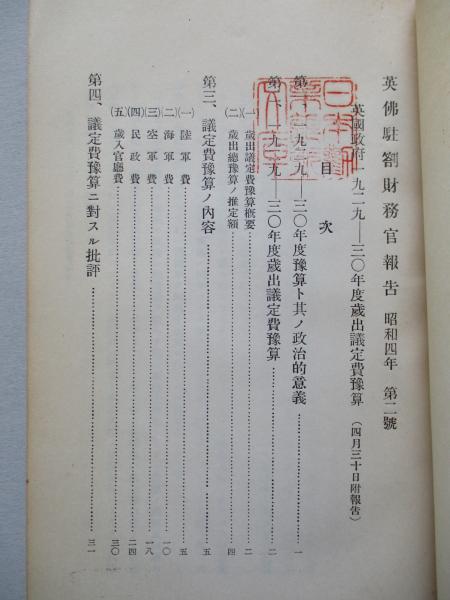 英佛駐劄財務官報告 昭和四年 第二號
英國政府一九二九―三〇年度歲出議定費豫算(四月三十日附報告)
目次
第一、一九二九―三〇年度豫算ト其ノ政治的意義……一
第二、一九二九―三〇年度歲出議定費豫算……二
(一)歲出議定費豫算槪要……二
(二)歲出總豫算ノ推定額……四
第三、議定費豫算ノ內容……五
(一)陸軍費……五
(二)海軍費……一〇
(三)空軍費……一八
(四)民政費……二四
(五)歲入官廳費……三〇
第四、議定費豫算ニ對スル批評……三一